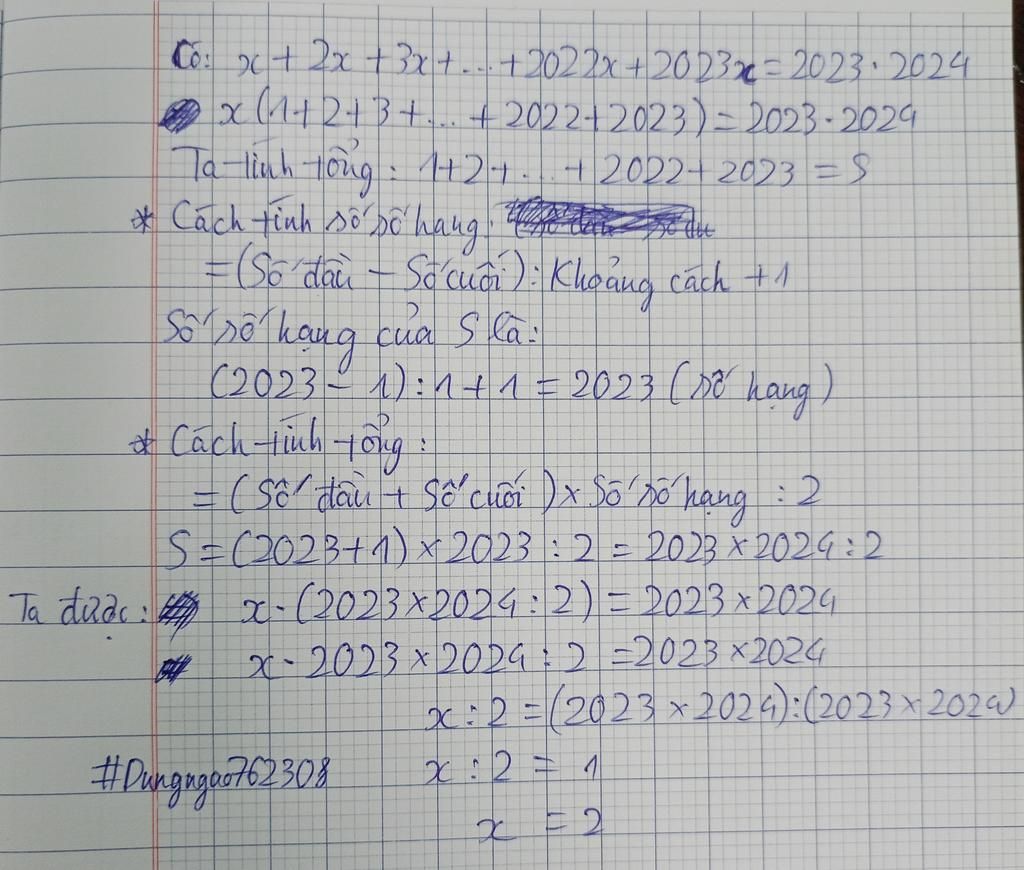 Có: x + 2x + 3x + ... + 2022x + 2023x = 2023 . 2024
x (1 + 2 + 3 + ... + 2022 + 2023) = 2023 . 2024
Ta tính tổng: 1 + 2 + ... + 2022 + 2023 = S
* Cách tính số số hạng:
= (Số đầu - Số cuối) : Khoảng cách + 1
Số số hạng của S là:
(2023 - 1) : 1 + 1 = 2023 (số hạng)
* Cách tính tổng:
= (Số đầu + Số cuối) x Số số hạng : 2
S = (2023 + 1) x 2023 : 2 = 2023 x 2024 : 2
Ta được: x . (2023 x 2024 : 2) = 2023 x 2024
x . 2023 x 2024 : 2 = 2023 x 2024
x : 2 = (2023 x 2024) : (2023 x 2024)
#Dungngao762308 x : 2 = 1
x = 2